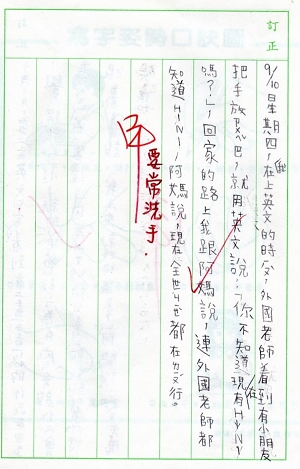 訂正
9/10星期四,我在上英文的時,外國老師看到有小朋友
把手放巴,就用英文說,「你不知道現在有H1N1
嗎?」,回家的路上我跟阿媽說,連外國老師都
知道H1N1,阿媽說,現在全世都在行。
要常洗手.
訂正